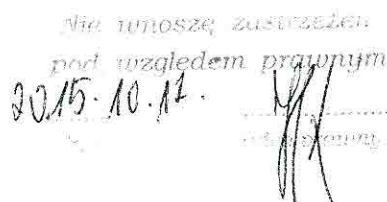 Nie wnoszę zastrzeżeń
pod względem prawnym
2015.10.12.